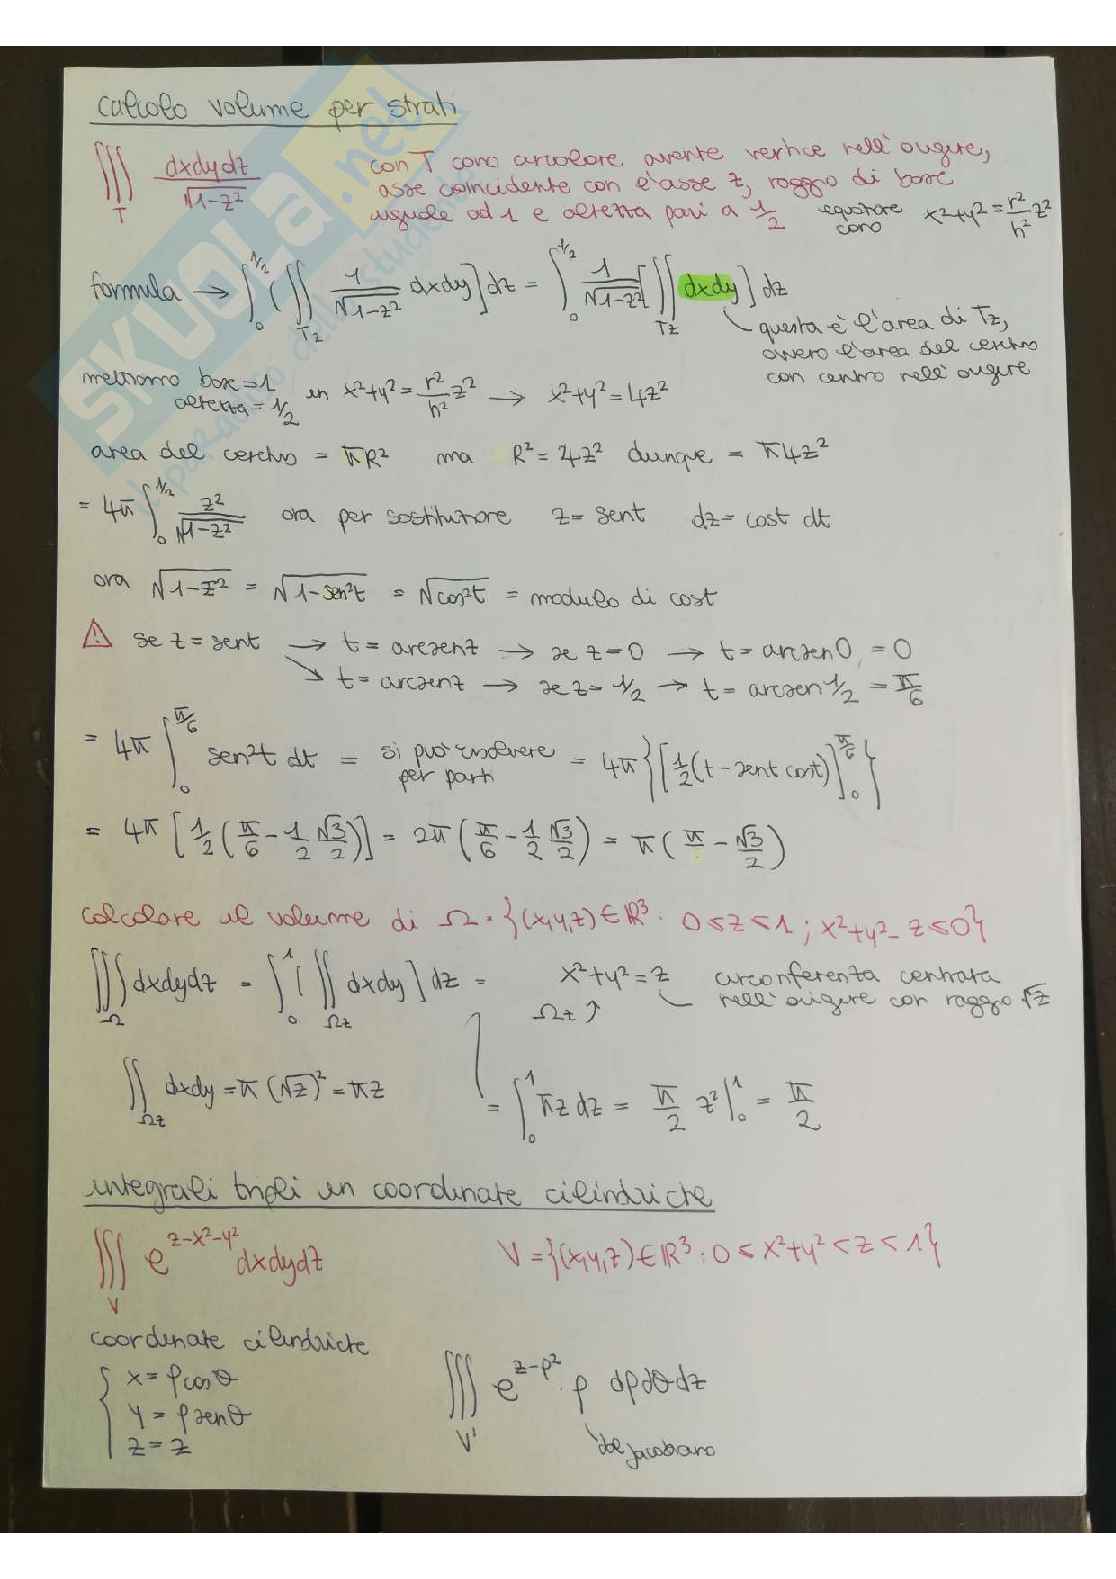 calcolo volume per strati
∭_T dxdydz/√(1-z²) con T cono circolare avente vertice nell'origine,
asse coincidente con l'asse z, raggio di base
uguale ad 1 e altezza pari a 1/2 equazione cono x²+y²=r²/h² z²
formula → ∫_0^{1/2} (∬_{Tz} 1/√(1-z²) dxdy] dz = ∫_0^{1/2} 1/√(1-z²) [∬_{Tz} dxdy] dz
questa è l'area di Tz,
ovvero l'area del cerchio
con centro nell'origine
mettiamo base=1 altezza=1/2 in x²+y²=r²/h² z² → x²+y²=4z²
area del cerchio = πR² ma R²=4z² dunque = π4z²
= 4π ∫_0^{1/2} z²/√(1-z²) ora per sostituzione z=sent dz=cost dt
ora √(1-z²) = √(1-sen²t) = √(cos²t) = modulo di cost
⚠ se z=sent → t=arcsenz → se z=0 → t=arcsen0 = 0
↘ t=arcsenz → se z=1/2 → t=arcsen1/2 = π/6
= 4π ∫_0^{π/6} sen²t dt = si può risolvere per parti = 4π{[1/2(t-sent cost)]_0^{π/6}}
= 4π[1/2(π/6 - 1/2 √3/2)] = 2π(π/6 - 1/2 √3/2) = π(π - √3/2)
calcolare il volume di Ω={(x,y,z)∈ℝ³: 0≤z≤1; x²+y²-z≤0}
∭_Ω dxdydz = ∫_0^1 (∬_{Ωz} dxdy] dz = x²+y²=z circonferenza centrata
Ωz ↗ nell'origine con raggio √z
∬_{Ωz} dxdy = π(√z)² = πz = ∫_0^1 πz dz = π/2 z²|_0^1 = π/2
integrali tripli in coordinate cilindriche
∭_V e^{z-x²-y²} dxdydz V={(x,y,z)∈ℝ³: 0≤x²+y²≤z≤1}
coordinate cilindriche
x=ρcosθ
y=ρsenθ
z=z
∭_{V'} e^{z-ρ²}·ρ dρdθdz
del jacobiano
SKUOLA.net